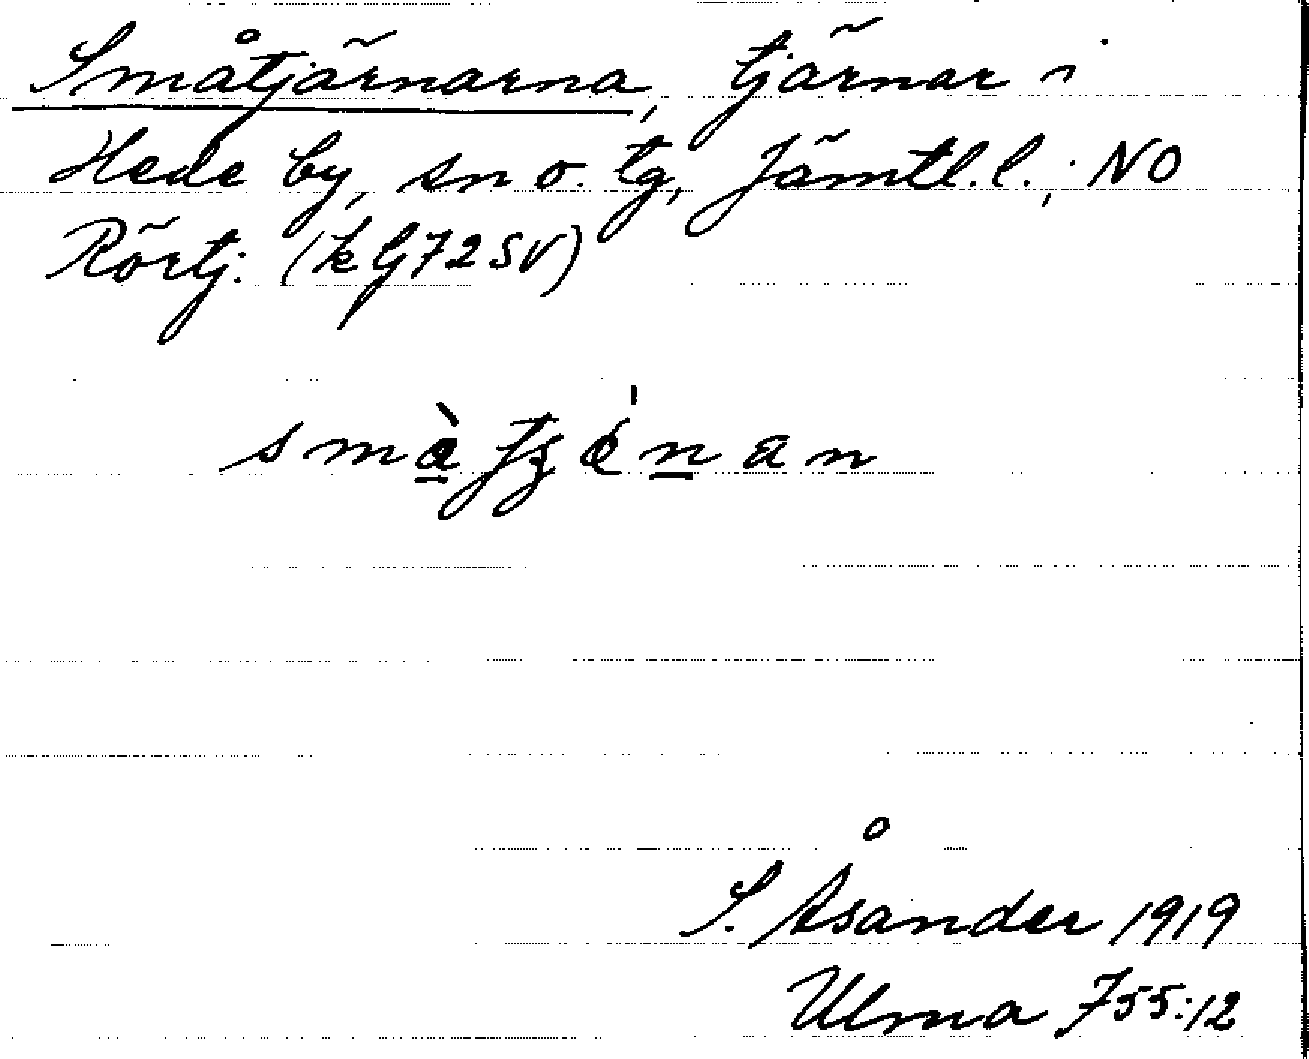 Småtjärnarna, tjärnar i
Hede by, sn o. tg, Jämtl. l.; NO
Rörtj. (k G72SV)
S. Åsander 1919
Ulma 755:12